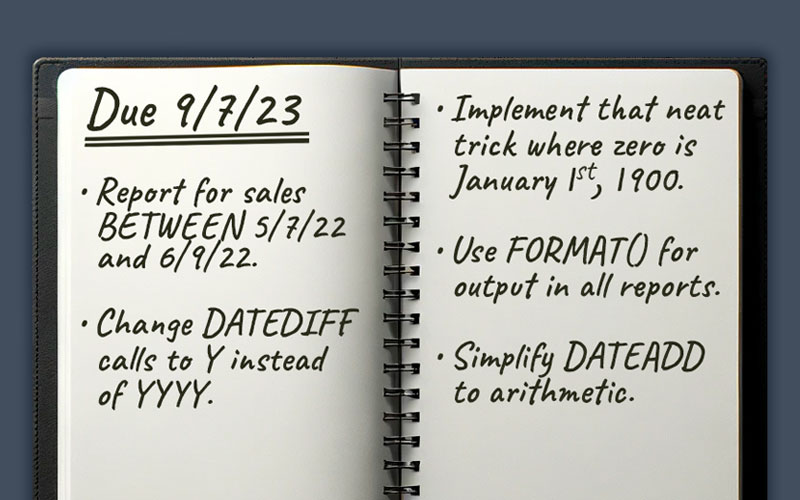 Due 9/7/23
• Report for sales
BETWEEN 5/7/22
and 6/9/22.
• Change DATEDIFF
calls to Y instead
of YYYY.
• Implement that neat
trick where zero is
January 1st, 1900.
• Use FORMAT() for
output in all reports.
• Simplify DATEADD
to arithmetic.